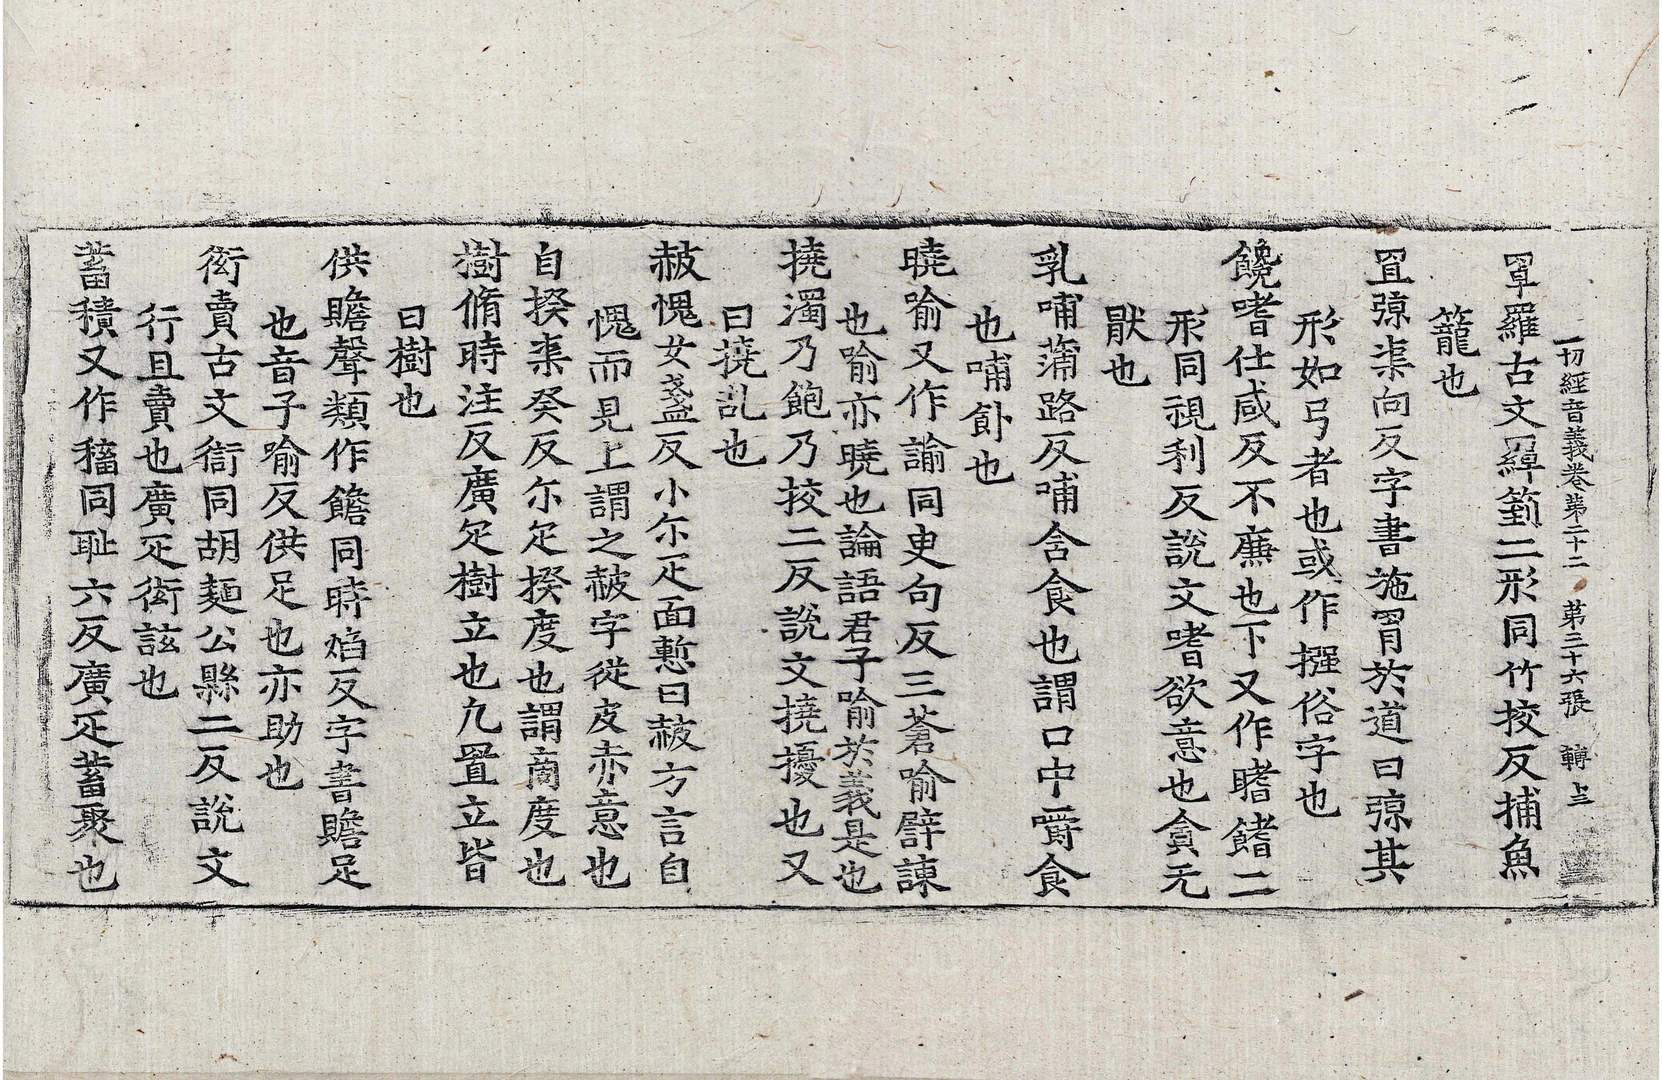 一切經音義卷第二十二　第三十六張　轉上三
罩羅古文羂䈇二形同竹挍反捕魚
籠也
罝弶渠向反字書施罥於道曰弶其
形如弓者也或作摾俗字也
饞嗜仕咸反不廉也下又作䁯餙二
形同視利反說文嗜欲意也貪无
猒也
乳哺蒲路反哺含食也謂口中嚼食
也哺飤也
曉喻又作諭同臾句反三蒼喻譬諫
也喻亦曉也論語君子喻於義是也
撓濁乃飽乃挍二反說文撓擾也又
曰撓乱也
赧愧女盞反小尒疋面慙曰赧方言自
愧而見上謂之赧字從皮赤意也
自揆渠癸反尒疋揆度也謂商度也
樹脩時注反廣疋樹立也凢置立皆
曰樹也
供贍聲類作䪜同時焰反字書贍足
也音子喻反供足也亦助也
衒賣古文衙同胡麵公縣二反說文
行且賣也廣疋衒詃也
蓄積又作稸同耻六反廣疋蓄聚也